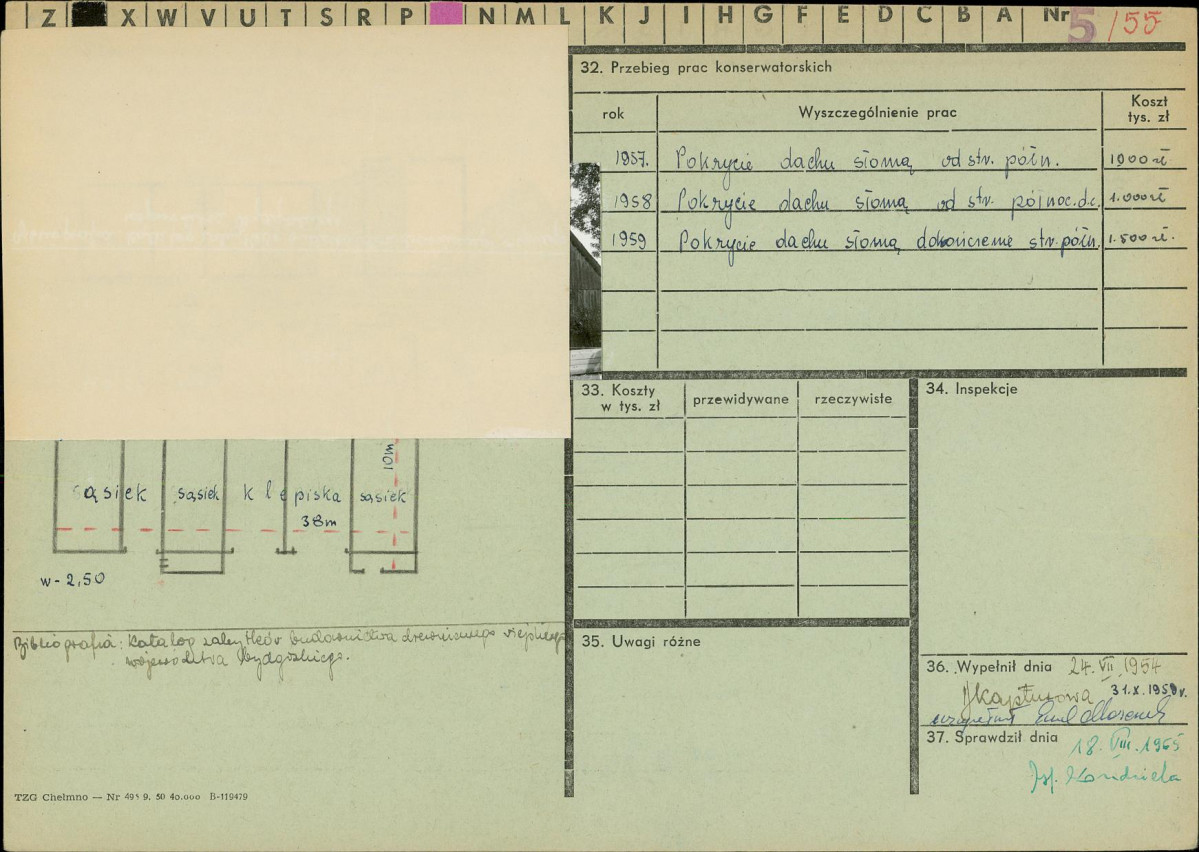 Z X W V U T S R P N M L K J I H G F E D C B A Nr 5/55
32. Przebieg prac konserwatorskich
rok Wyszczególnienie prac Koszt tys. zł
1957. Pokrycie dachu słomą od str. półn. 1900 zł
1958 Pokrycie dachu słomą od str. północ. d.c. 1.000 zł
1959 Pokrycie dachu słomą dokończenie str. półn. 1.500 zł.
33. Koszty w tys. zł przewidywane rzeczywiste
34. Inspekcje
10m
sąsiek sąsiek klepiska sąsiek
38m
w - 2,50
Bibliografia: Katalog zabytków budownictwa drewnianego wiejskiego
województwa bydgoskiego.
35. Uwagi różne
36. Wypełnił dnia 24. VII. 1954
31.X.1959r.
uzupełnił Emil
37. Sprawdził dnia 18. VIII. 1965
TZG Chełmno — Nr 495 9. 50 40.000 B-119479